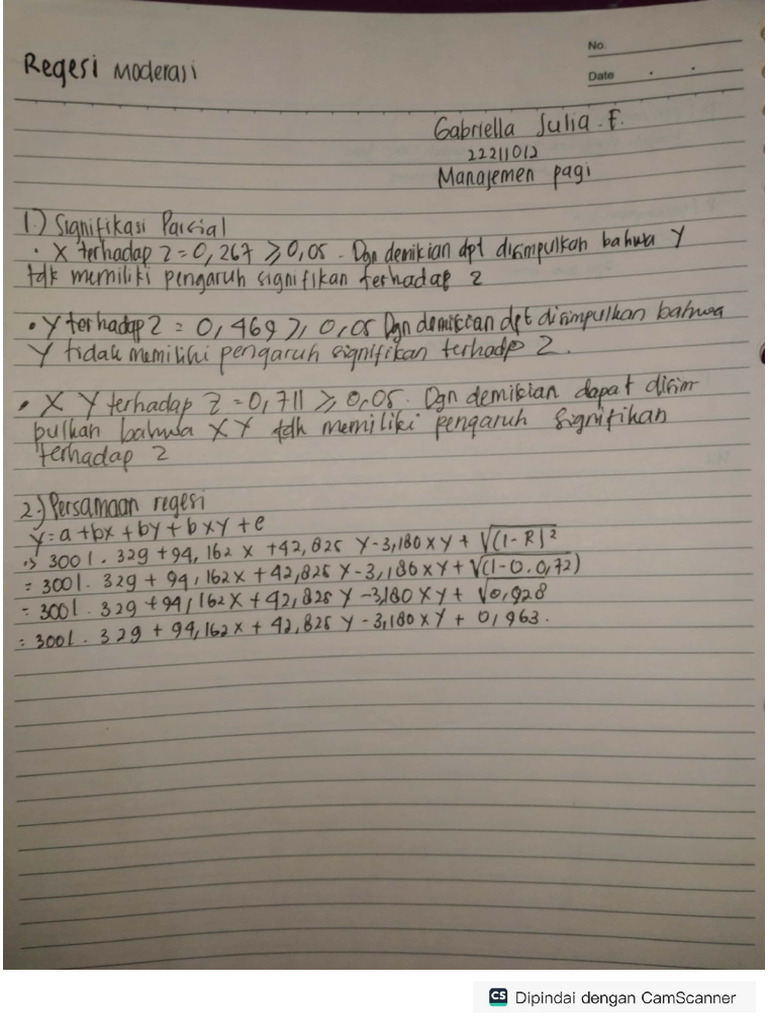 No.
Regesi Moderasi
Date
Gabriella Julia. F.
22211012
Manajemen pagi
1.) Signifikasi Parsial
• X terhadap Z = 0,267 ⩾ 0,05. Dgn demikian dpt disimpulkan bahwa Y
tdk memiliki pengaruh signifikan terhadap Z
• Y terhadap Z = 0,469 ⩾ 0,05 Dgn demikian dpt disimpulkan bahwa
Y tidak memiliki pengaruh signifikan terhadp Z.
• X Y terhadap Z = 0,711 ⩾ 0,05. Dgn demikian dapat disim
pulkan bahwa X Y tdk memiliki pengaruh signifikan
terhadap Z
2.) Persamaan regesi
Y = a + bx + by + b xy + e
3001.329 + 94,162 X + 42,825 Y - 3,180 XY + √(1-R)²
= 3001.329 + 94,162 X + 42,825 Y - 3,180 XY + √(1-0.0,72)
= 3001.329 + 94,162 X + 42,825 Y - 3,180 XY + √0,928
= 3001.329 + 94,162 X + 42,825 Y - 3,180 XY + 0,963.
CS Dipindai dengan CamScanner